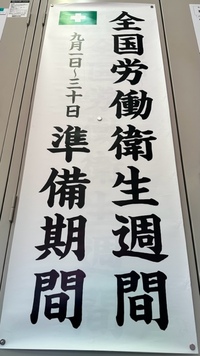 全国労働衛生週間
九月一日～三十日
準備期間